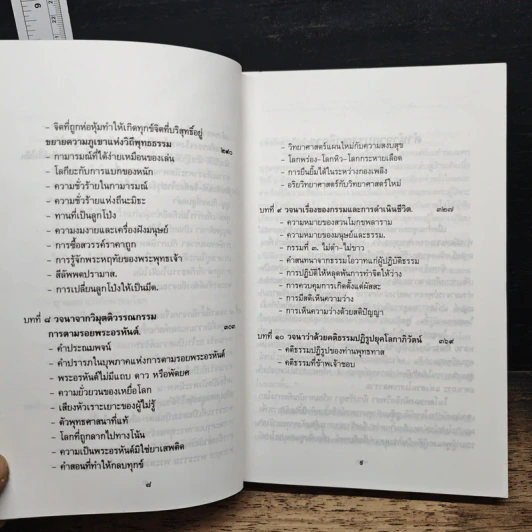 - จิตที่ถูกห่อหุ้มทำให้เกิดทุกข์จิตที่บริสุทธิ์อยู่
ขยายความภูเขาแห่งวิถีพุทธธรรม ๒๔๐
- กามารมณ์ที่ได้ง่ายเหมือนของเล่น
- โลกียะกับการแบกของหนัก
- ความชั่วร้ายในกามารมณ์
- ความชั่วร้ายแห่งถีนะมิธะ
- ทานที่เป็นลูกโป่ง
- ความงมงายและเครื่องฝังมนุษย์
- การซื้อสวรรค์ราคาถูก
- การรู้จักพระหฤทัยของพระพุทธเจ้า
- สีลัพพตปรามาส.
- การเปลี่ยนลูกโป่งให้เป็นมีด.
บทที่ ๘ วจนาจากวิมุตติวรรณกรรม
การตามรอยพระอรหันต์. ๓๐๓
- คำประณมพจน์
- คำปรารภในบุพภาคแห่งการตามรอยพระอรหันต์
- พระอรหันต์ไม่มีแถบ ดาว หรือพัดยศ
- ความยั่วยวนของเหยื่อโลก
- เสียงหัวเราะเยาะของผู้ไม่รู้
- ตัวพุทธศาสนาที่แท้
- โลกที่ถูกลากไปทางโน้น
- ความเป็นพระอรหันต์มิใช่ยาเสพติด
- คำสอนที่ทำให้กลบทุกข์
๘
- วิทยาศาสตร์แผนใหม่กับความสงบสุข
- โลกพร่อง-โลกหิว-โลกกระหายเลือด
- การยืนยิ้มได้ในระหว่างกองเพลิง
- อริยวิทยาศาสตร์กับวิทยาศาสตร์ใหม่
บทที่ ๙ วจนาเรื่องของกรรมและการดำเนินชีวิต. ๓๒๗
- ความหมายของสวนโมกขพลาราม
- ความหมายของมนุษย์และธรรม.
- กรรมที่ ๓. ไม่ดำ-ไม่ขาว
- คำสนทนาจากธรรมโอวาทแก่ผู้ปฏิบัติธรรม
- การปฏิบัติให้หลุดพ้นการทำจิตให้ว่าง
- การควบคุมการเกิดตั้งแต่ผัสสะ
- การมีสติเห็นความว่าง
- การเห็นความว่างด้วยสติปัญญา
บทที่ ๑๐ วจนาว่าด้วยคติธรรมปฏิรูปยุคโลกาภิวัตน์ ๓๖๙
- คติธรรมปฏิรูปของท่านพุทธทาส
- คติธรรมที่ข้าพเจ้าชอบ
๙